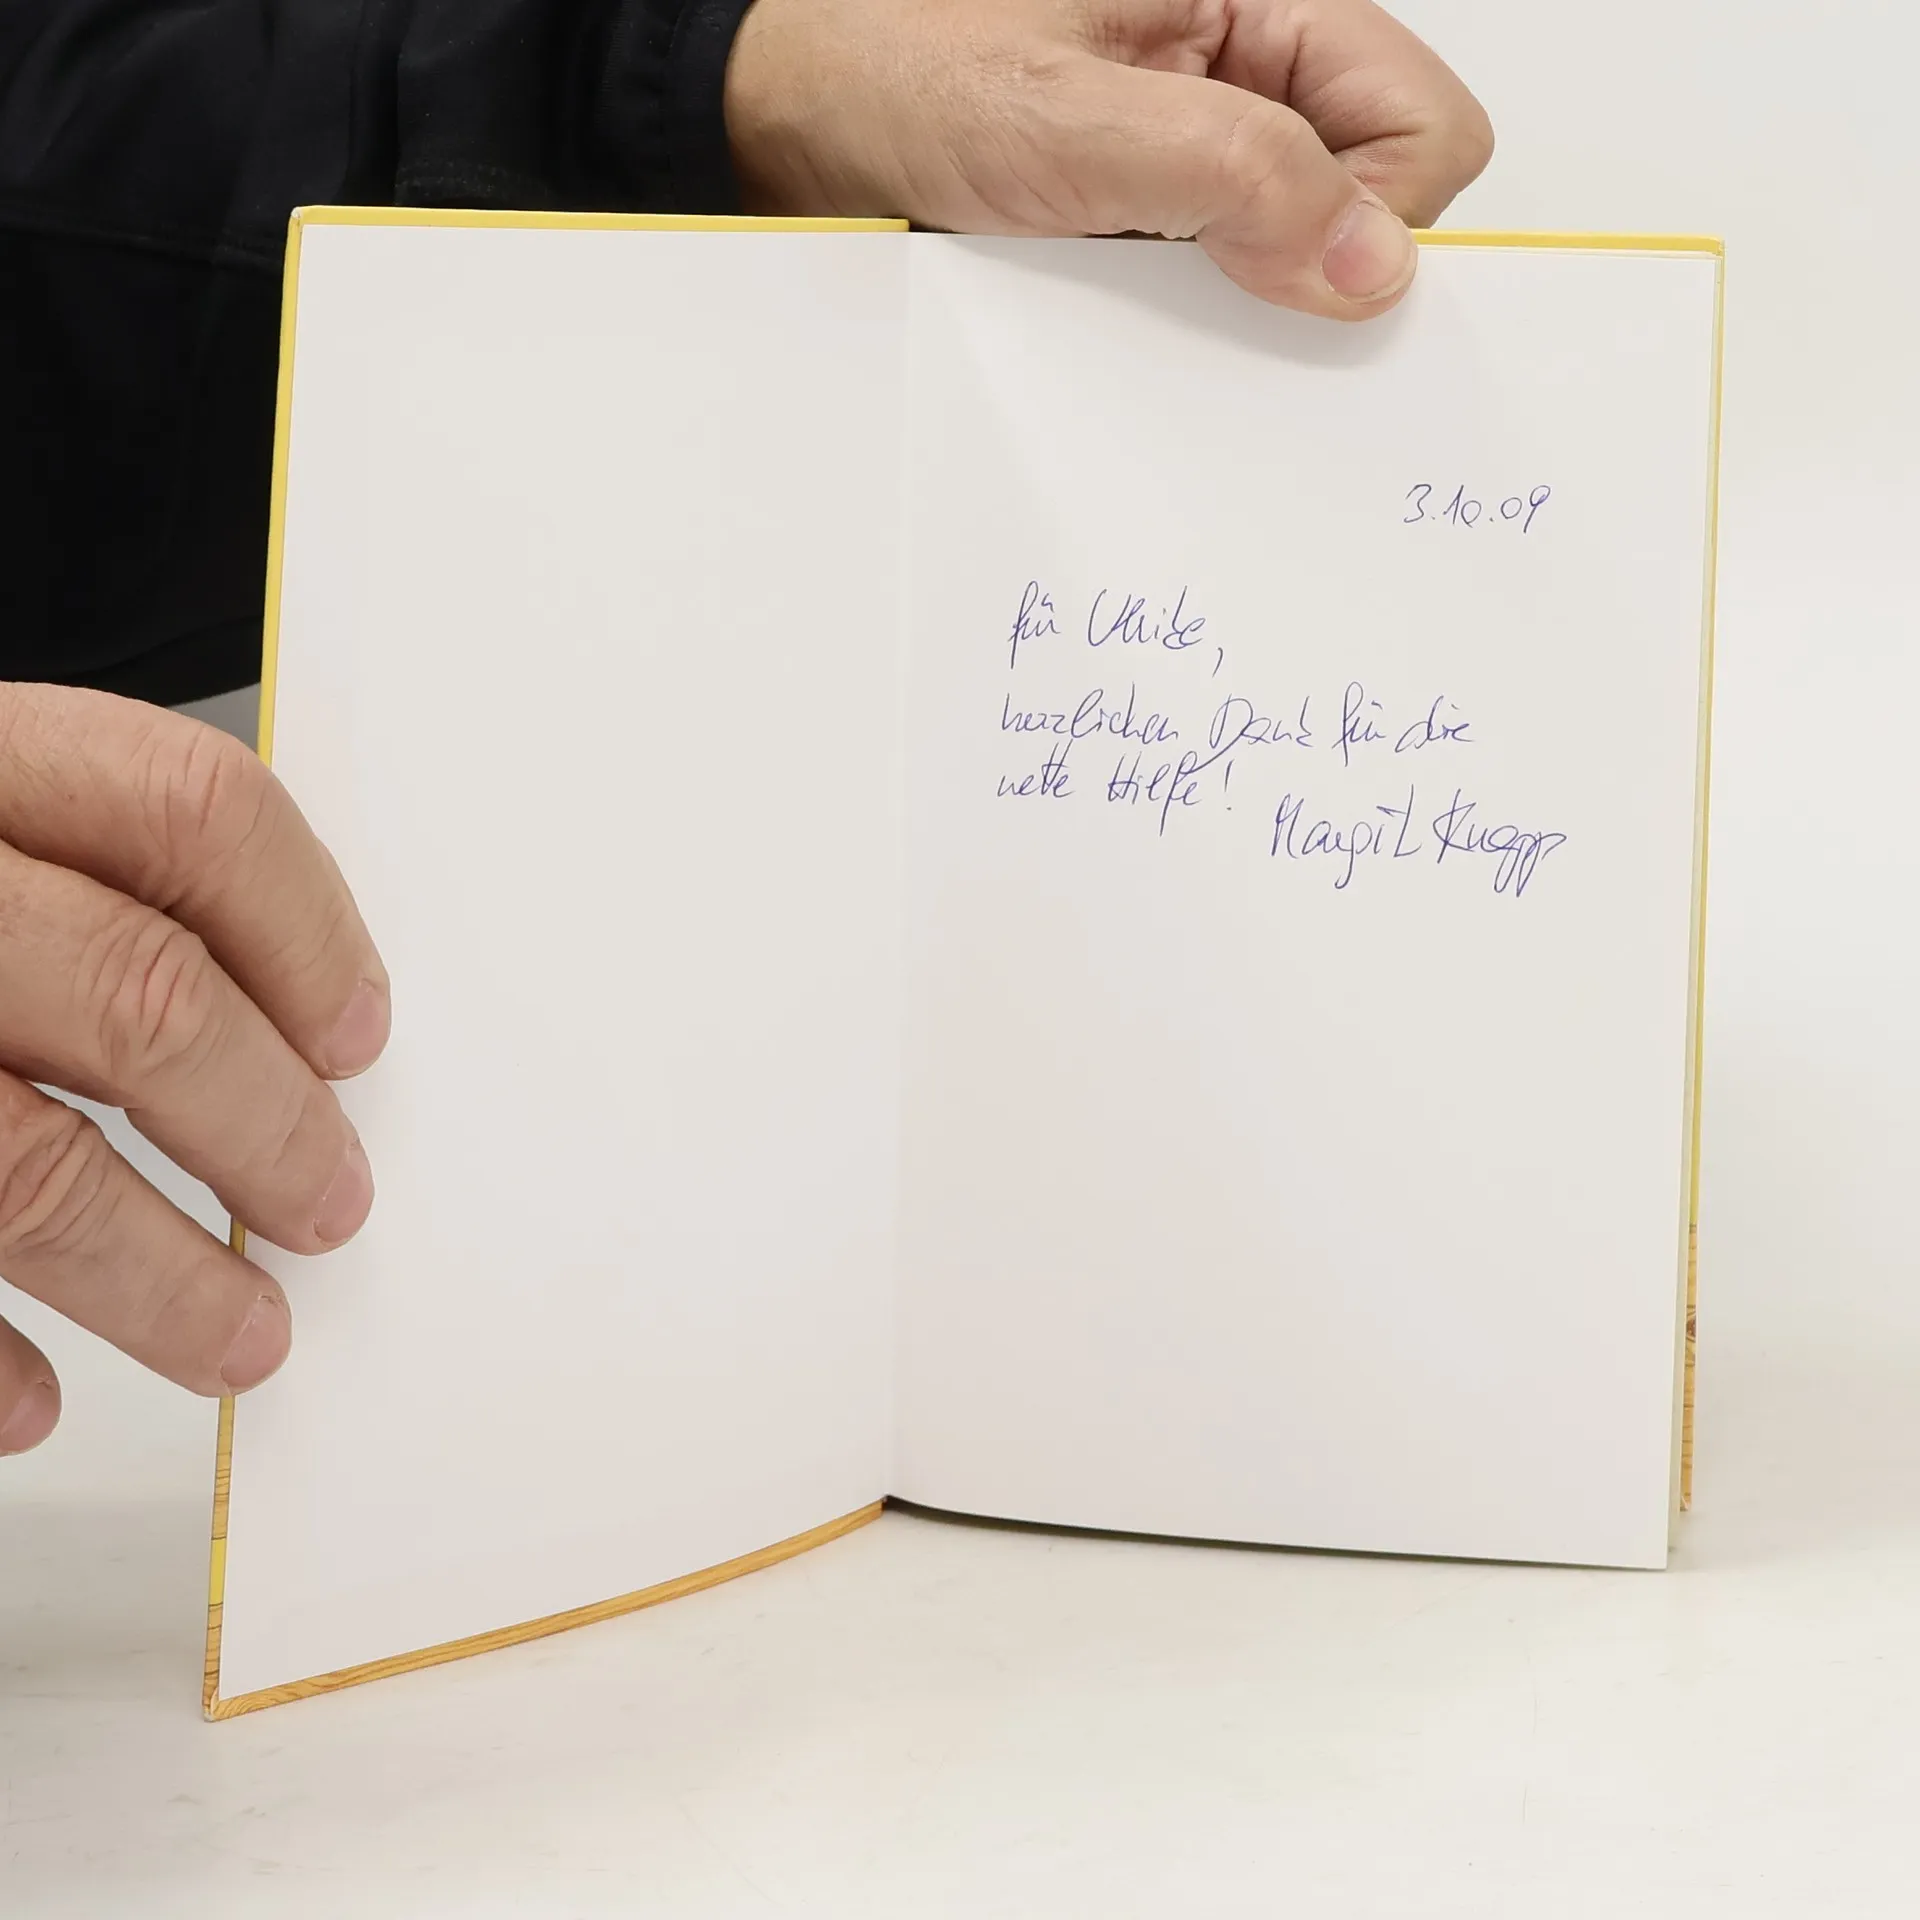 3.10.09
für Ulrike,
herzlichen Dank für die
nette Hilfe!
Margit Knapp